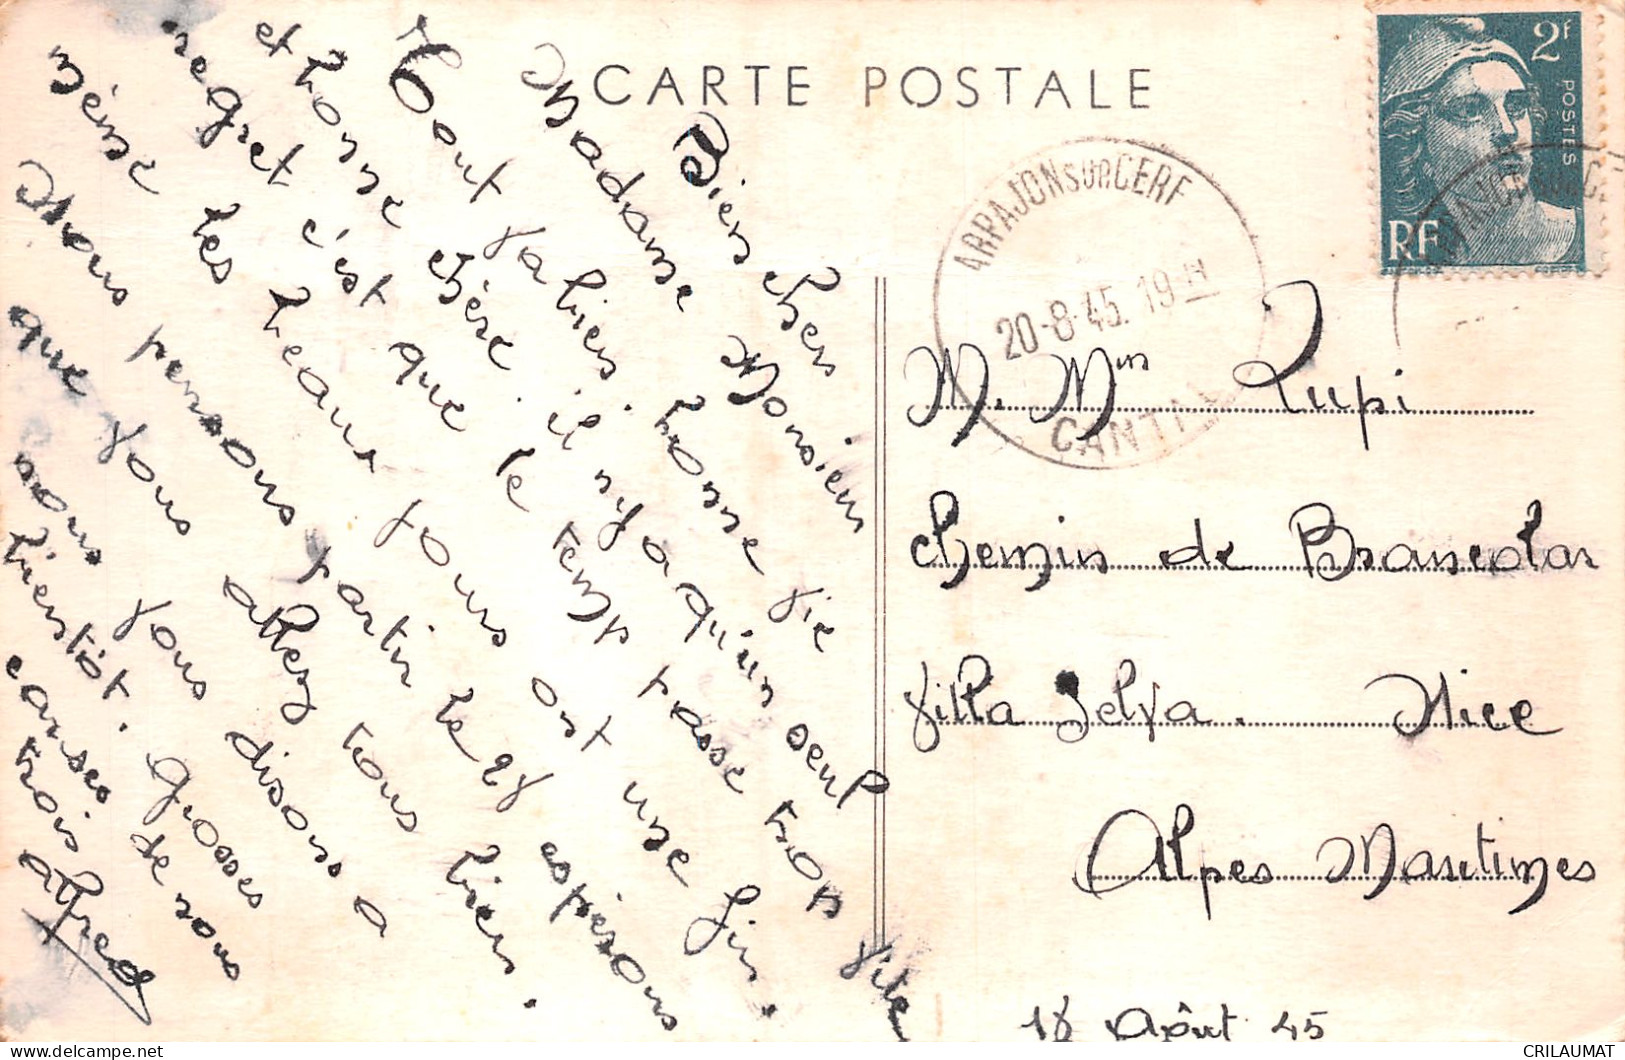 CARTE POSTALE
Bien chers
Madame Monsieur
Tout va bien, bonne vie
et bonne chère, il n'y a qu'un seul
regret c'est que le temps passe trop vite
même les beaux jours ont une fin.
Nous pensons partir le 28 espérons
que vous allez tous bien.
nous vous disons a
bientôt. Grosses
carsses de nous
trois
Alfred
2F
POSTES
RF
ARPAJON SUR CERE
20-8-45. 19H
CANTAL
M. Mm Lupi
Chemin de Brancolar
Villa Selva. Nice
Alpes Maritimes
18 Août 45
CRILAUMAT